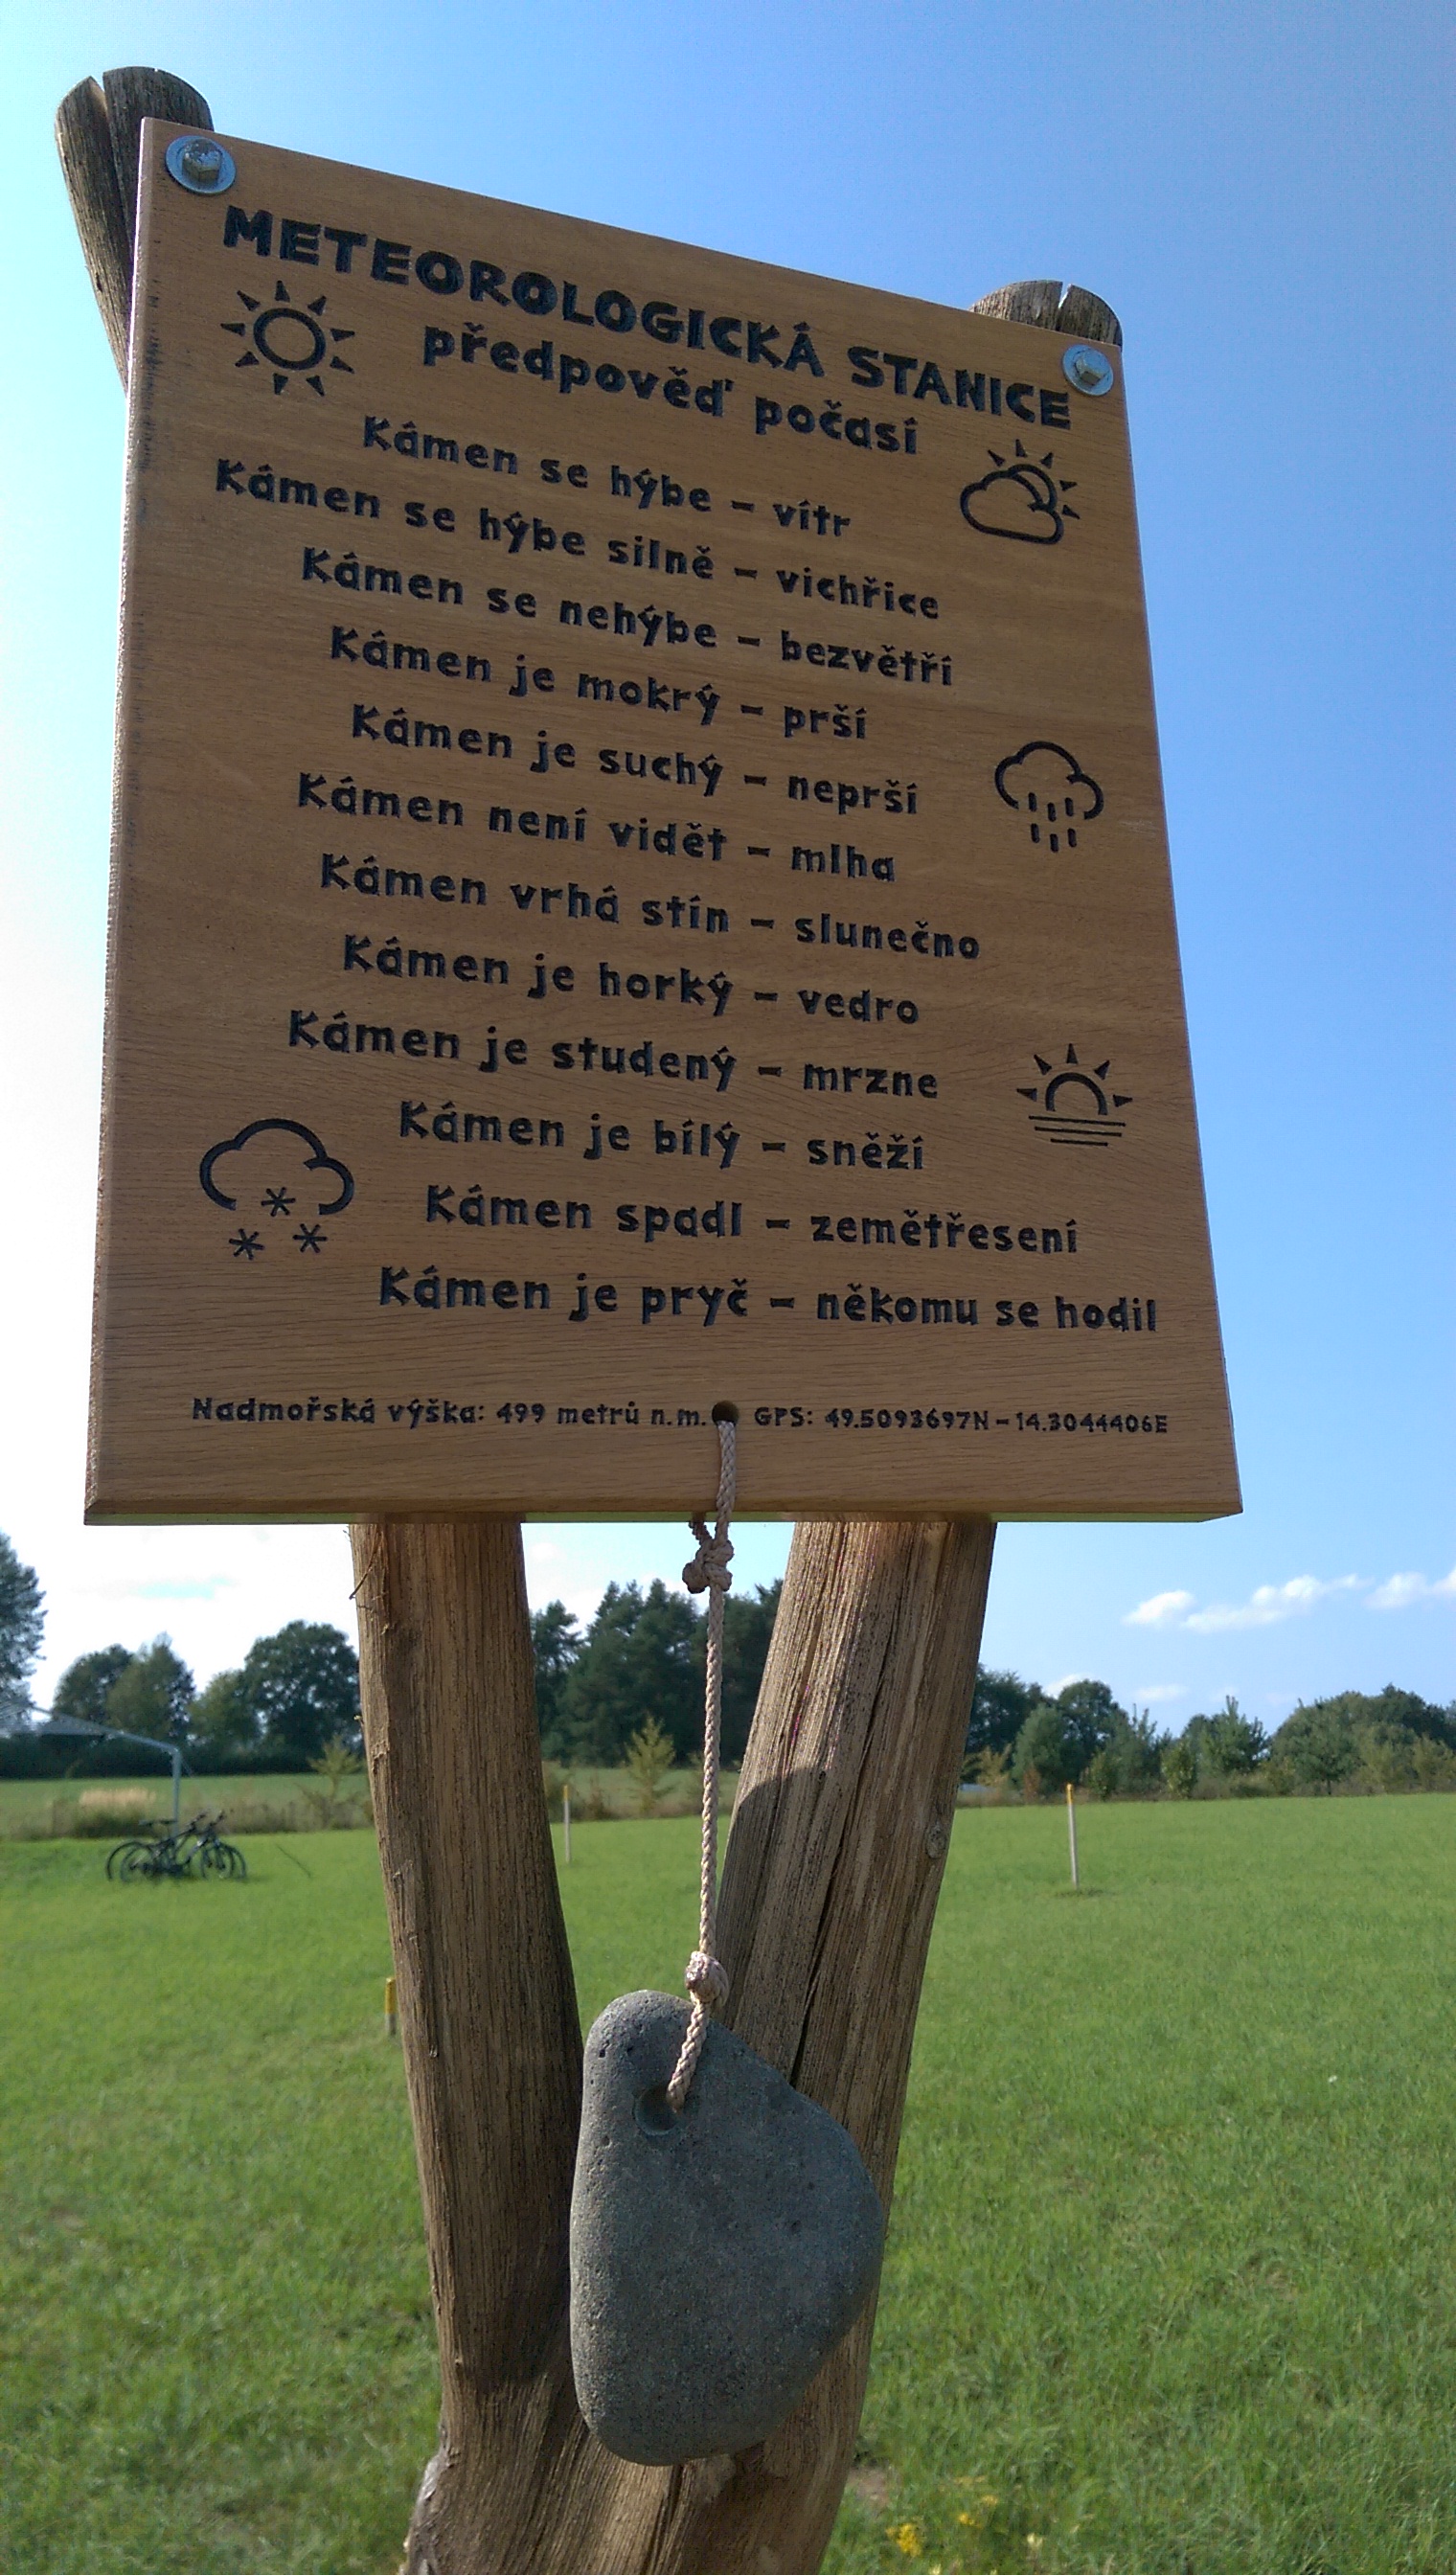 METEOROLOGICKÁ STANICE
předpověď počasí
Kámen se hýbe – vítr
Kámen se hýbe silně – vichřice
Kámen se nehýbe – bezvětří
Kámen je mokrý – prší
Kámen je suchý – neprší
Kámen není vidět – mlha
Kámen vrhá stín – slunečno
Kámen je horký – vedro
Kámen je studený – mrzne
Kámen je bílý – sněží
Kámen spadl – zemětřesení
Kámen je pryč – někomu se hodil
Nadmořská výška: 499 metrů n.m. GPS: 49.5093697N – 14.3044406E